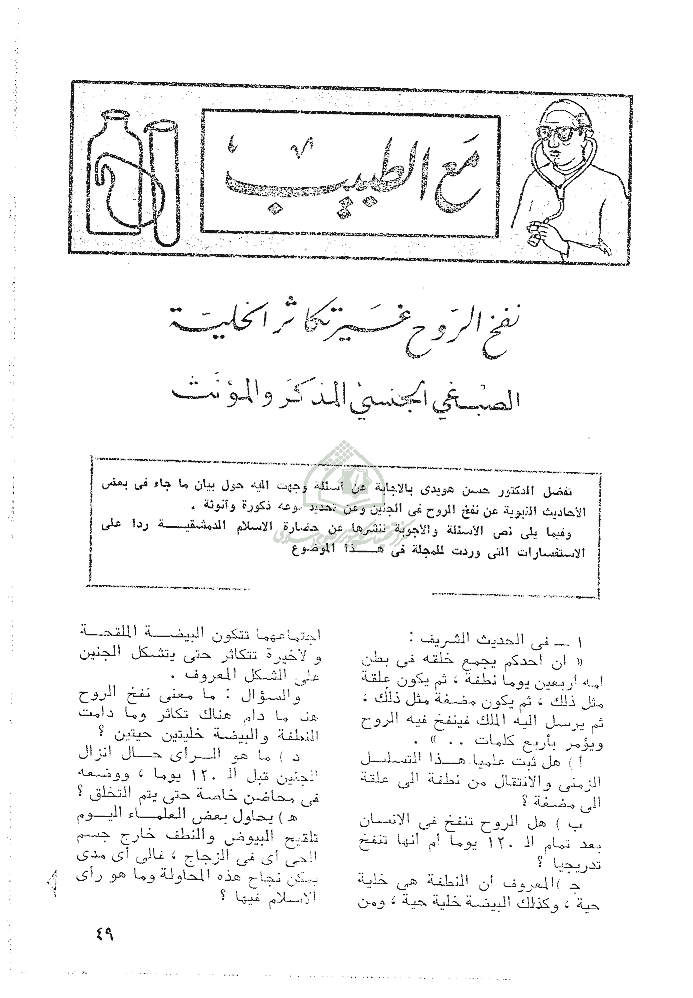 مع الطبيب
نفخ الروح غير تكاثر الخلية
الصبغي الجنسي المذكر والمؤنث
تفضل الدكتور حسن هويدى بالاجابة عن أسئلة وجهت اليه حول بيان ما جاء فى بعض
الأحاديث النبوية عن نفخ الروح فى الجنين وعن تحديد نوعه ذكورة وأنوثة .
وفيما يلى نص الأسئلة والأجوبة ننشرها عن حضارة الاسلام الدمشقية ردا على
الاستفسارات التى وردت للمجلة فى هذا الموضوع
١ ــ فى الحديث الشريف :
« ان أحدكم يجمع خلقه فى بطن
امه أربعين يوما نطفة ، ثم يكون علقة
مثل ذلك ، ثم يكون مضغة مثل ذلك ،
ثم يرسل اليه الملك فينفخ فيه الروح
ويؤمر بأربع كلمات .. » .
أ ) هل ثبت علميا هذا التسلسل
الزمنى والانتقال من نطفة الى علقة
الى مضغة ؟
ب ) هل الروح تنفخ فى الانسان
بعد تمام الـ ١٢٠ يوما أم أنها تنفخ
تدريجيا ؟
جـ ) المعروف أن النطفة هى خلية
حية ، وكذلك البيضة خلية حية ، ومن
اجتماعهما تتكون البيضة الملقحة
والأخيرة تتكاثر حتى يتشكل الجنين
على الشكل المعروف .
والسؤال : ما معنى نفخ الروح
هنا ما دام هناك تكاثر وما دامت
النطفة والبيضة خليتين حيتين ؟
د ) ما هو الرأى حال انزال
الجنين قبل الـ ١٢٠ يوما ، ووضعه
فى محاضن خاصة حتى يتم التخلق ؟
هـ ) يحاول بعض العلماء اليوم
تلقيح البيوض والنطف خارج جسم
الحى أى فى الزجاج ، فالى أى مدى
يمكن نجاح هذه المحاولة وما هو رأى
الاسلام فيها ؟
٤٩